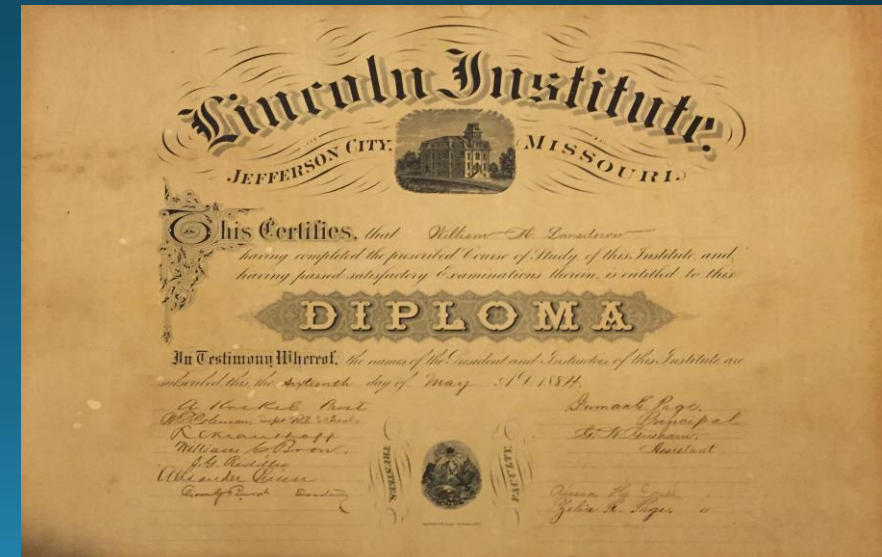 Lincoln Institute.
JEFFERSON CITY. MISSOURI.
This Certifies, that William H.
having completed the prescribed Course of Study of this Institute and
having passed satisfactory Examinations therein, is entitled to this
DIPLOMA
In Testimony Whereof, the names of the President and Instructors of this Institute are
subscribed this the sixteenth day of May A.D. 1884.
Inman E. Page.
Principal
Coleman Schools
William C. Boon.
Assistant
TRUSTEES.
FACULTY.
Zelia R. Page. "